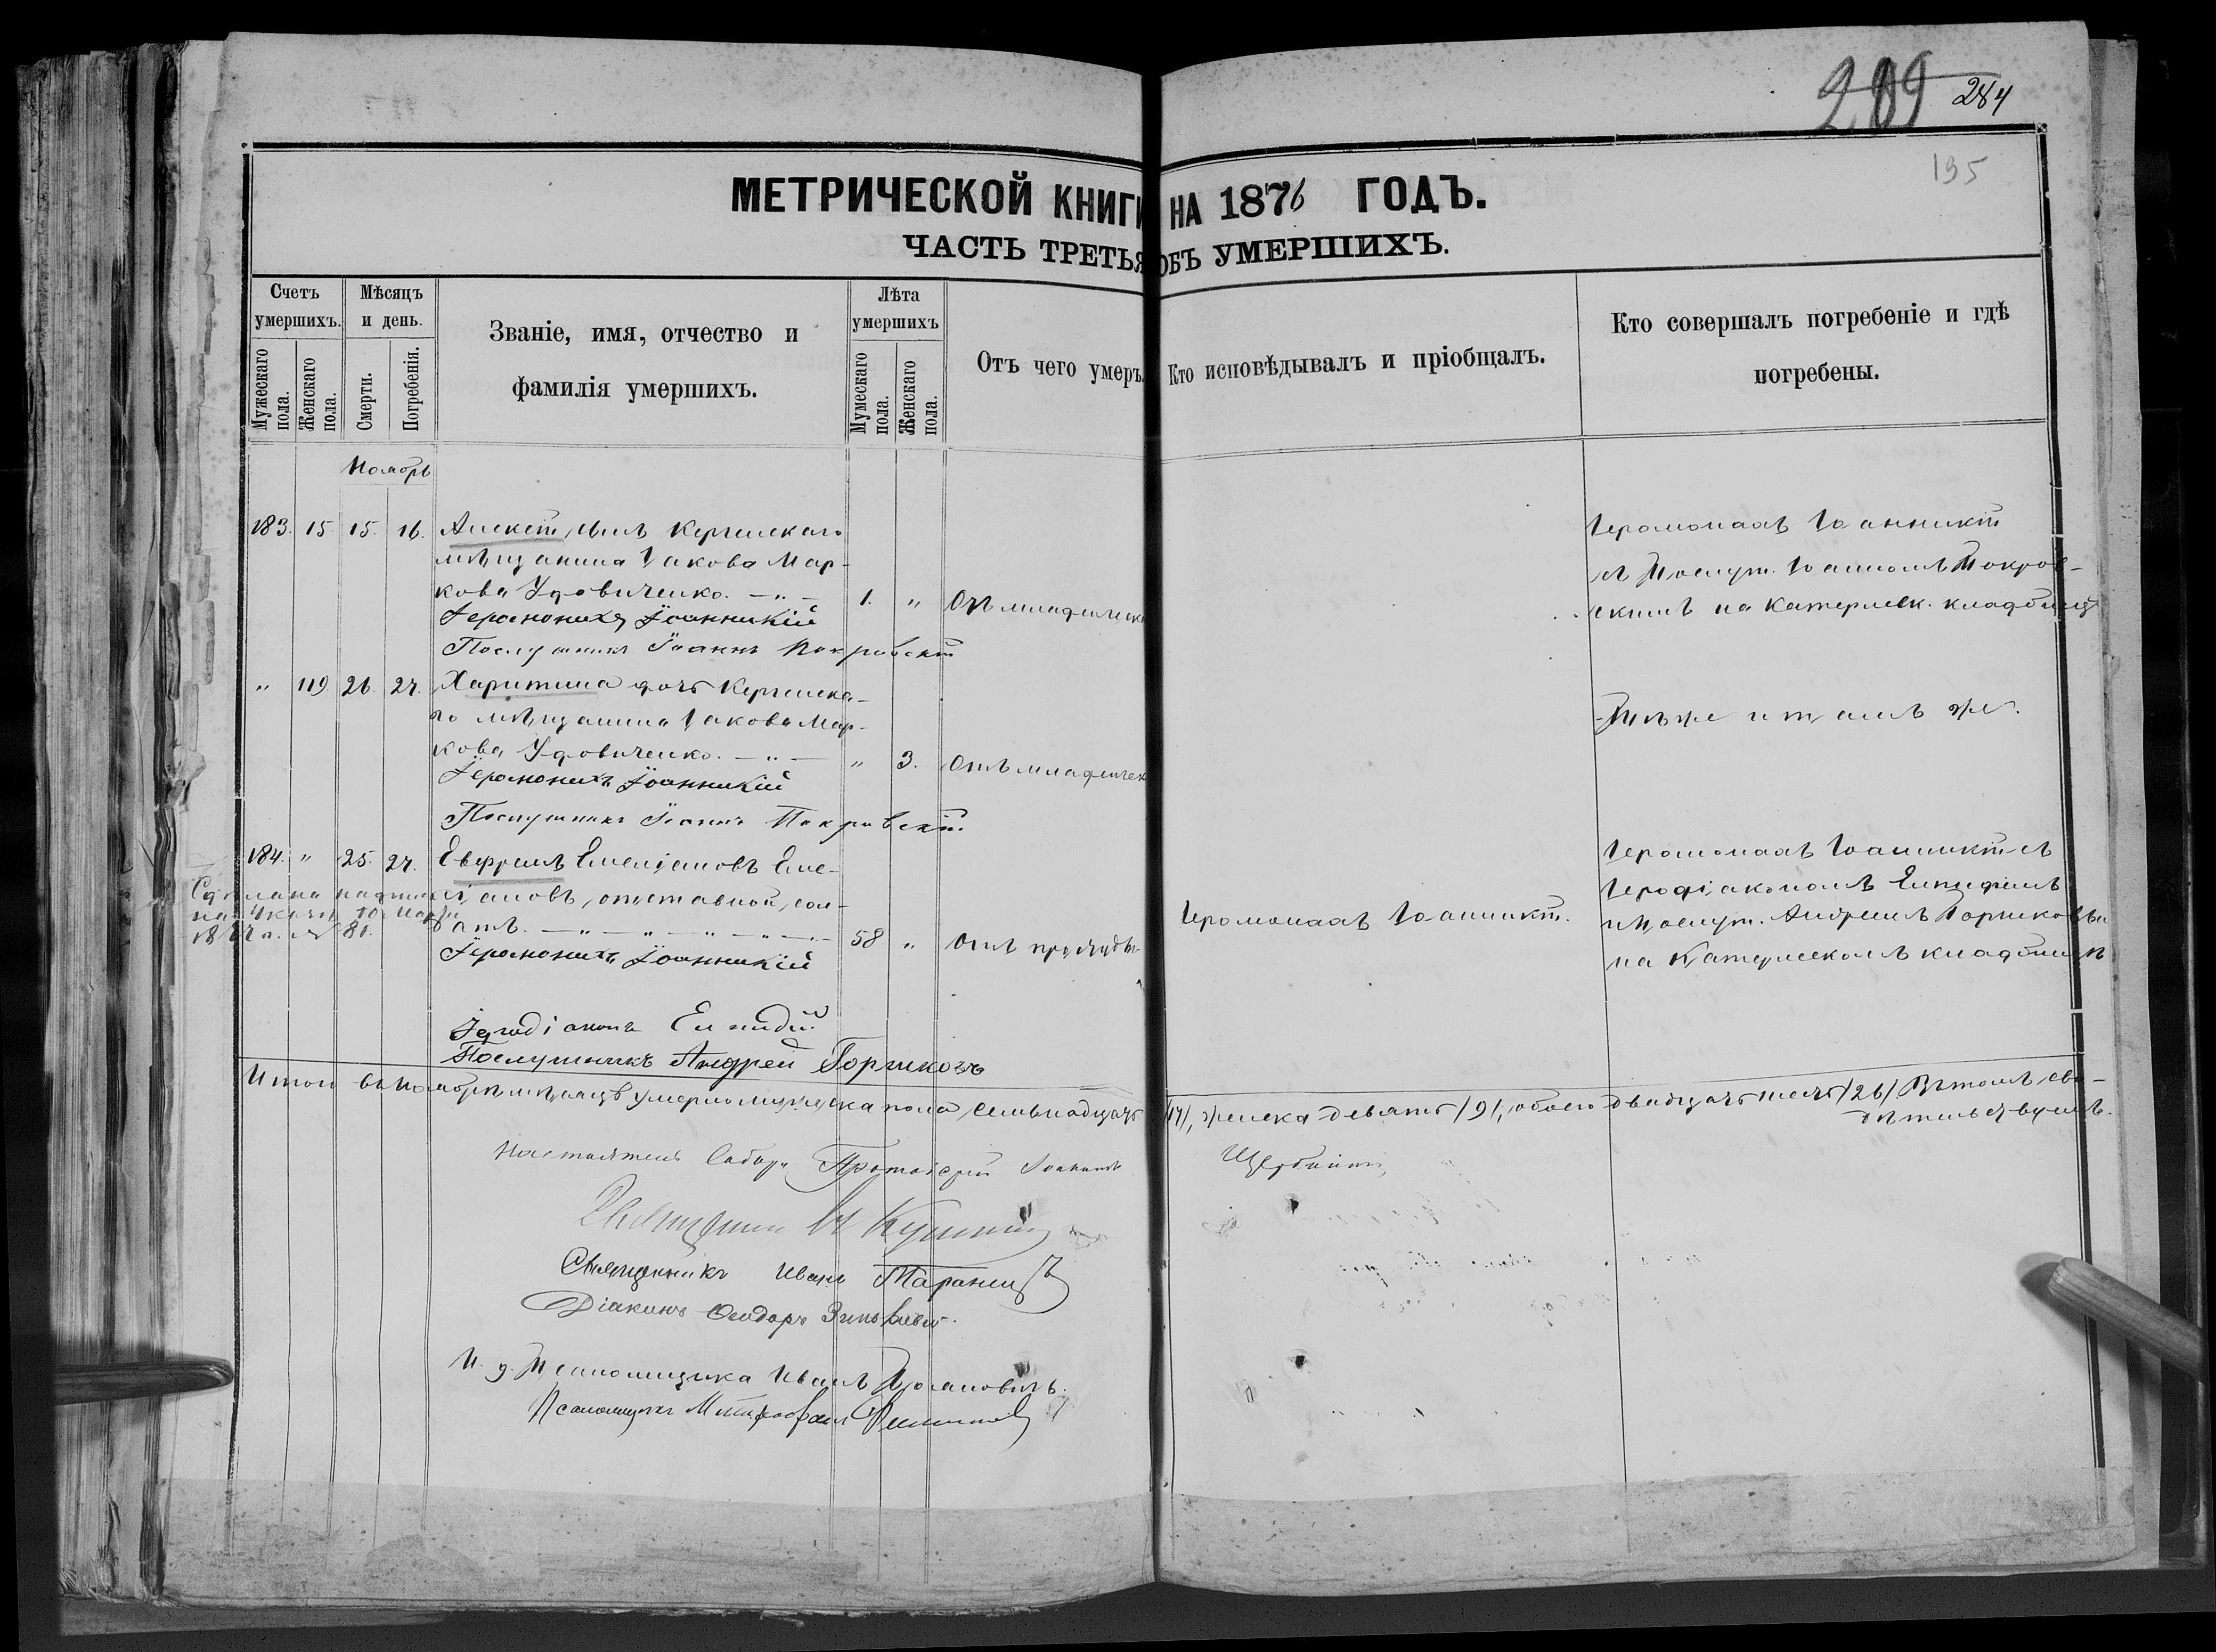 289 284
195
МЕТРИЧЕСКОЙ КНИГИ НА 1876 ГОДЪ.
ЧАСТЬ ТРЕТЬЯ ОБЪ УМЕРШИХЪ.
Счетъ умершихъ.
Мужескаго пола.
Женскаго пола.
Мѣсяцъ и день.
Смерти.
Погребенія.
Званіе, имя, отчество и
фамилія умершихъ.
Лѣта умершихъ
Мужескаго пола.
Женскаго пола.
Отъ чего умеръ.
Кто исповѣдывалъ и пріобщалъ.
Кто совершалъ погребеніе и гдѣ
погребены.
Ноябрь
183. 15. 15. 16. Алексѣй, сынъ Керченскаго
мѣщанина Іакова Мар-
кова Удовиченко. 1. " Отъ младенческ
Іеромонахъ Іоанникій
Послушникъ Іоаннъ Покровскій
Іеромонахъ Іоанникій
съ Послуш. Іоанномъ Покров-
скимъ на Катерлезск. кладбищѣ
" 119. 26. 27. Харитина дочь Керченска-
го мѣщанина Іакова Мар-
кова Удовиченко. " 3. Отъ младенчек
Іеромонахъ Іоанникій
Послушникъ Іоаннъ Покровскій
Тѣ же и тамъ же.
184. " 25. 27. Евфремъ Емеліановъ Еме-
ліановъ, отставной сол-
датъ. 58 " Отъ простуды
Іеромонахъ Іоанникій
Іеродіаконъ Елпидій
Послушникъ Андрей Горшковъ
Сдѣлана надпись
на Указѣ 10 Марта
1877 г. № 81.
Іеромонахъ Іоанникій.
Іеромонахъ Іоанникій съ
Іеродіакономъ Елпидіемъ
и Послуш. Андреемъ Горшковымъ
на Катерлезскомъ кладбищѣ
Итого въ Ноябрѣ мѣсяцѣ умерло мужеска пола семьнадцать /17/, женска девять /9/, обоего двадцать шесть /26/ Въ томъ сви-
дѣтельствуемъ.
Настоятель Собора Протоіерей Іоаннъ
Священникъ
Священникъ Иванъ Таранецъ
Діаконъ Ѳеодоръ Зиньковъ.
И. д. Псаломщика Иванъ
Псаломщикъ Митрофанъ